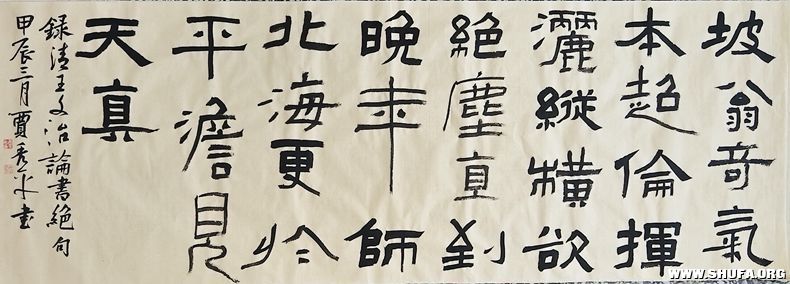 坡翁奇氣
本超倫揮
灑縱橫欲
絕塵直到
晚年師
北海更於
平澹見
天真
錄清王文治論書絕句
甲辰三月賈秀書
WWW.SHUFA.ORG